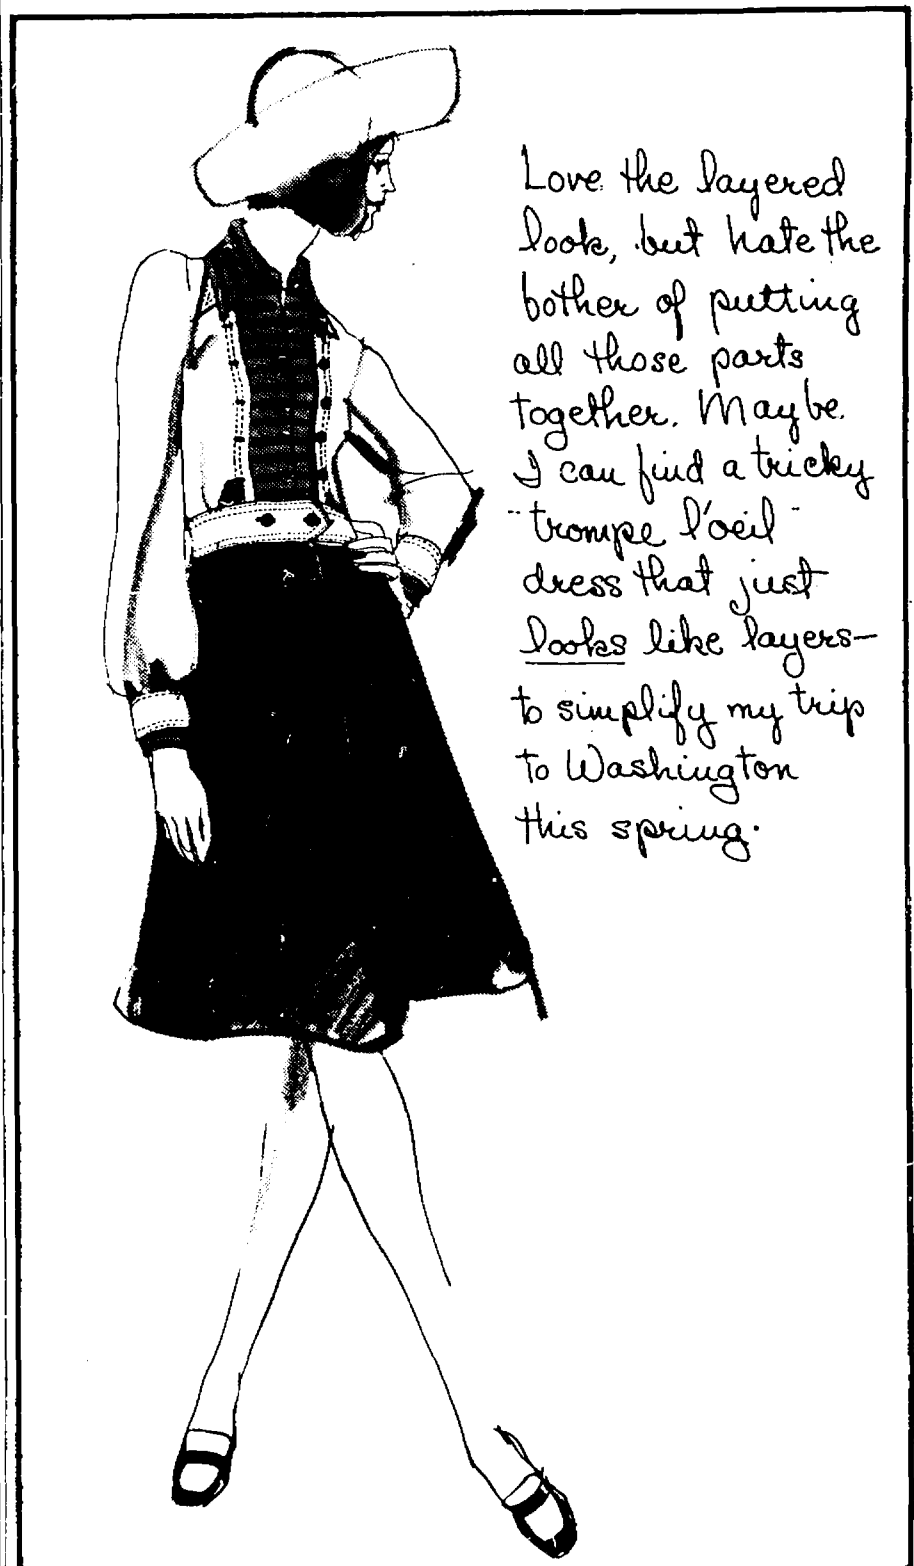 Love the layered
look, but hate the
bother of putting
all those parts
together. Maybe
I can find a tricky
"trompe l'oeil"
dress that just
looks like layers—
to simplify my trip
to Washington
this spring.